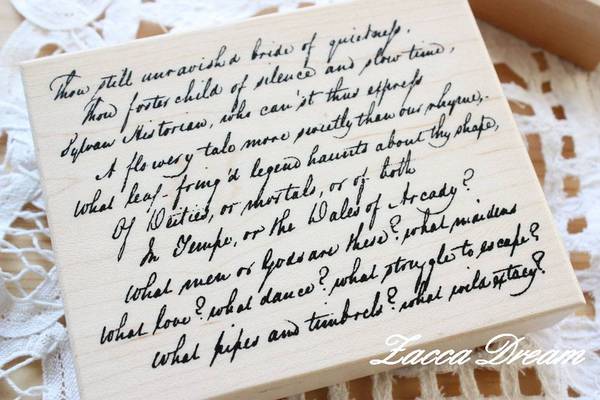 Thou still unravish'd bride of quietness,
Thou foster child of silence and slow time,
Sylvan Historian, who can'st thus express
A flowery tale more sweetly than our rhyme,
What leaf-fring'd legend haunts about thy shape,
Of Deities, or mortals, or of both
In Tempe, or the Dales of Arcady?
What men or Gods are these? what maidens
What love? what dance? what struggle to escape?
What pipes and timbrels? what wild extacy?
Zacca Dream